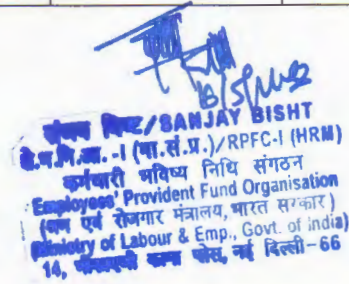 संजय बिष्ट/SANJAY BISHT
क्षे.भ.नि.आ. -I (मा.सं.प्र.)/RPFC-I (HRM)
कर्मचारी भविष्य निधि संगठन
Employees' Provident Fund Organisation
(श्रम एवं रोजगार मंत्रालय, भारत सरकार)
(Ministry of Labour & Emp., Govt. of India)
14, भीकाजी कामा प्लेस, नई दिल्ली-66